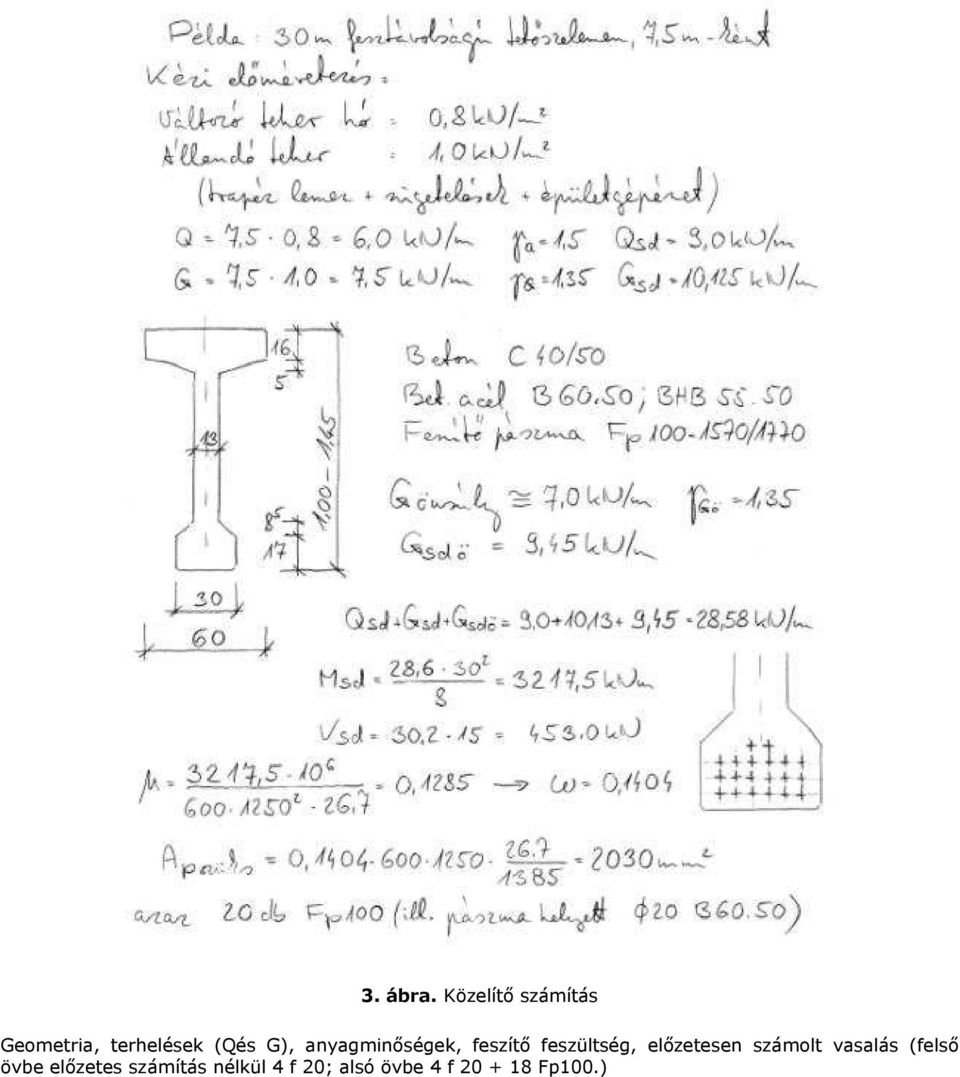 Példa: 30m fesztávolságú tetőszelemen, 7,5m-ként
Kézi előméretezés:
Változó teher hó = 0,8 kN/m²
Állandó teher = 1,0 kN/m²
(trapéz lemez + szigetelések + épületgépészet)
Q = 7,5 · 0,8 = 6,0 kN/m γa = 1,5 Qsd = 9,0 kN/m
G = 7,5 · 1,0 = 7,5 kN/m γG = 1,35 Gsd = 10,125 kN/m
16
5
13
1,00 - 1,45
8⁵
17
30
60
Beton C 40/50
Bet. acél B 60.50; BHB 55.50
Feszítő pászma Fp 100-1570/1770
Gönsúly ≅ 7,0 kN/m γGö = 1,35
Gsdö = 9,45 kN/m
Qsd+Gsd+Gsdö = 9,0+10,13+9,45 = 28,58 kN/m
Msd = 28,6 · 30² / 8 = 3217,5 kNm
Vsd = 30,2 · 15 = 453,0 kN
μ = 3217,5 · 10⁶ / 600 · 1250² · 26,7 = 0,1285 → ω = 0,1404
Apászma = 0,1404 · 600 · 1250 · 26.7 / 1385 = 2030 mm²
azaz 20 db Fp100 (ill. pászma helyett ϕ20 B60.50)
3. ábra. Közelítő számítás
Geometria, terhelések (Qés G), anyagminőségek, feszítő feszültség, előzetesen számolt vasalás (felső
övbe előzetes számítás nélkül 4 f 20; alsó övbe 4 f 20 + 18 Fp100.)